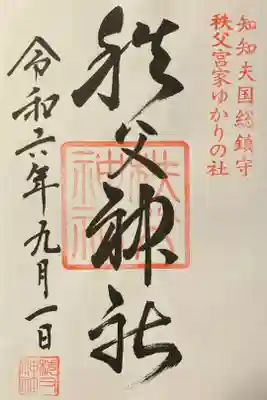 知知夫国総鎮守
秩父宮家ゆかりの社
秩父神社
秩父神社
令和六年九月一日